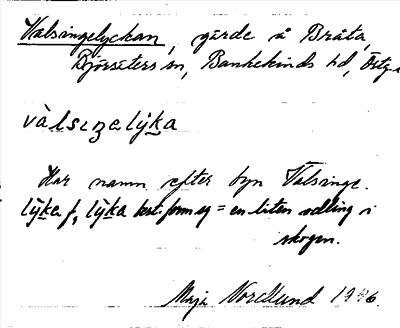 Valsingelyckan, gärde å Bråta,
Björsäters sn, Bankekinds hd, Östg.
vàlsiŋelýka
Har namn efter byn Valsinge.
lýka f, lýka best. form sg = en liten odling i
skogen.
Maja Nordlund 1946.